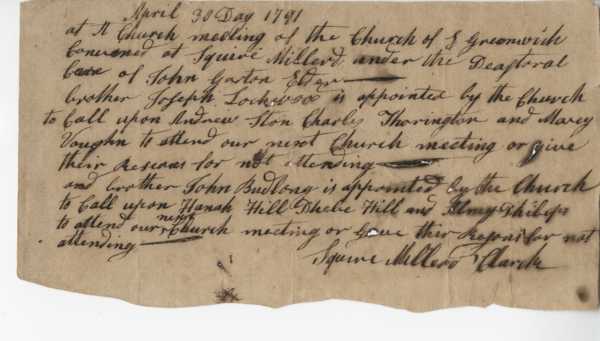 April 30 Day 1791
at A Church meeting of the Church of E Greenwich
Convened at Squire Millerd under the Peastoral
Care of John Gorton Elder
brother Joseph Lockwood is appointed by the Church
to Call upon Andrew Ston Charles Thorington and Marcy
Vaughn to attend our next Church meeting or give
their Resons for not attending
and brother John Budlong is appointed by the Church
to Call upon Hanah Hill Phebe Hill and Philips
to attend our next Church meeting or Give thir Resons for not
attending
Squire Millerd Clarck